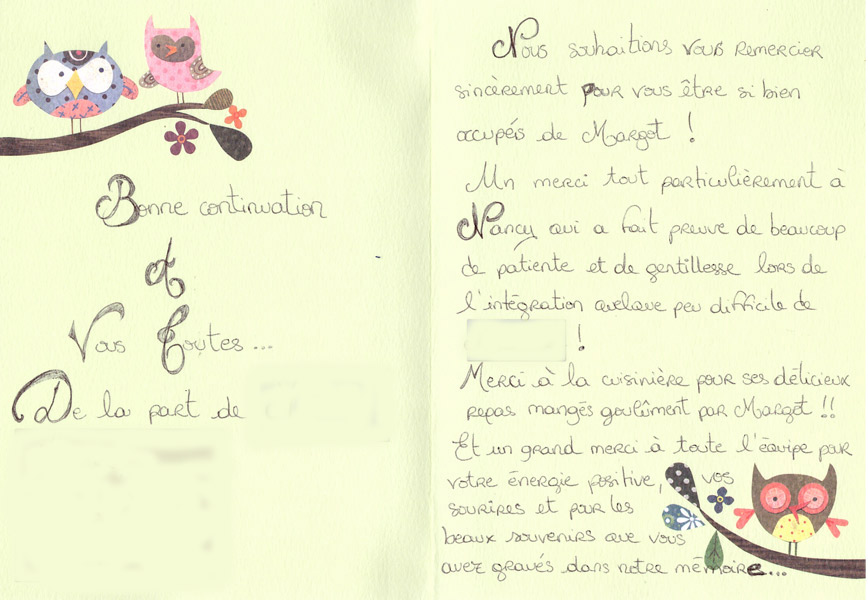 Bonne continuation
à
Vous Toutes...
De la part de
Nous souhaitions vous remercier
sincèrement pour vous être si bien
occupés de Margot !
Un merci tout particulièrement à
Nancy qui a fait preuve de beaucoup
de patiente et de gentillesse lors de
l'intégration quelque peu difficile de
!
Merci à la cuisinière pour ses délicieux
repas mangés goulûment par Margot !!
Et un grand merci à toute l'équipe pour
votre énergie positive, vos
sourires et pour les
beaux souvenirs que vous
avez gravés dans notre mémoire...